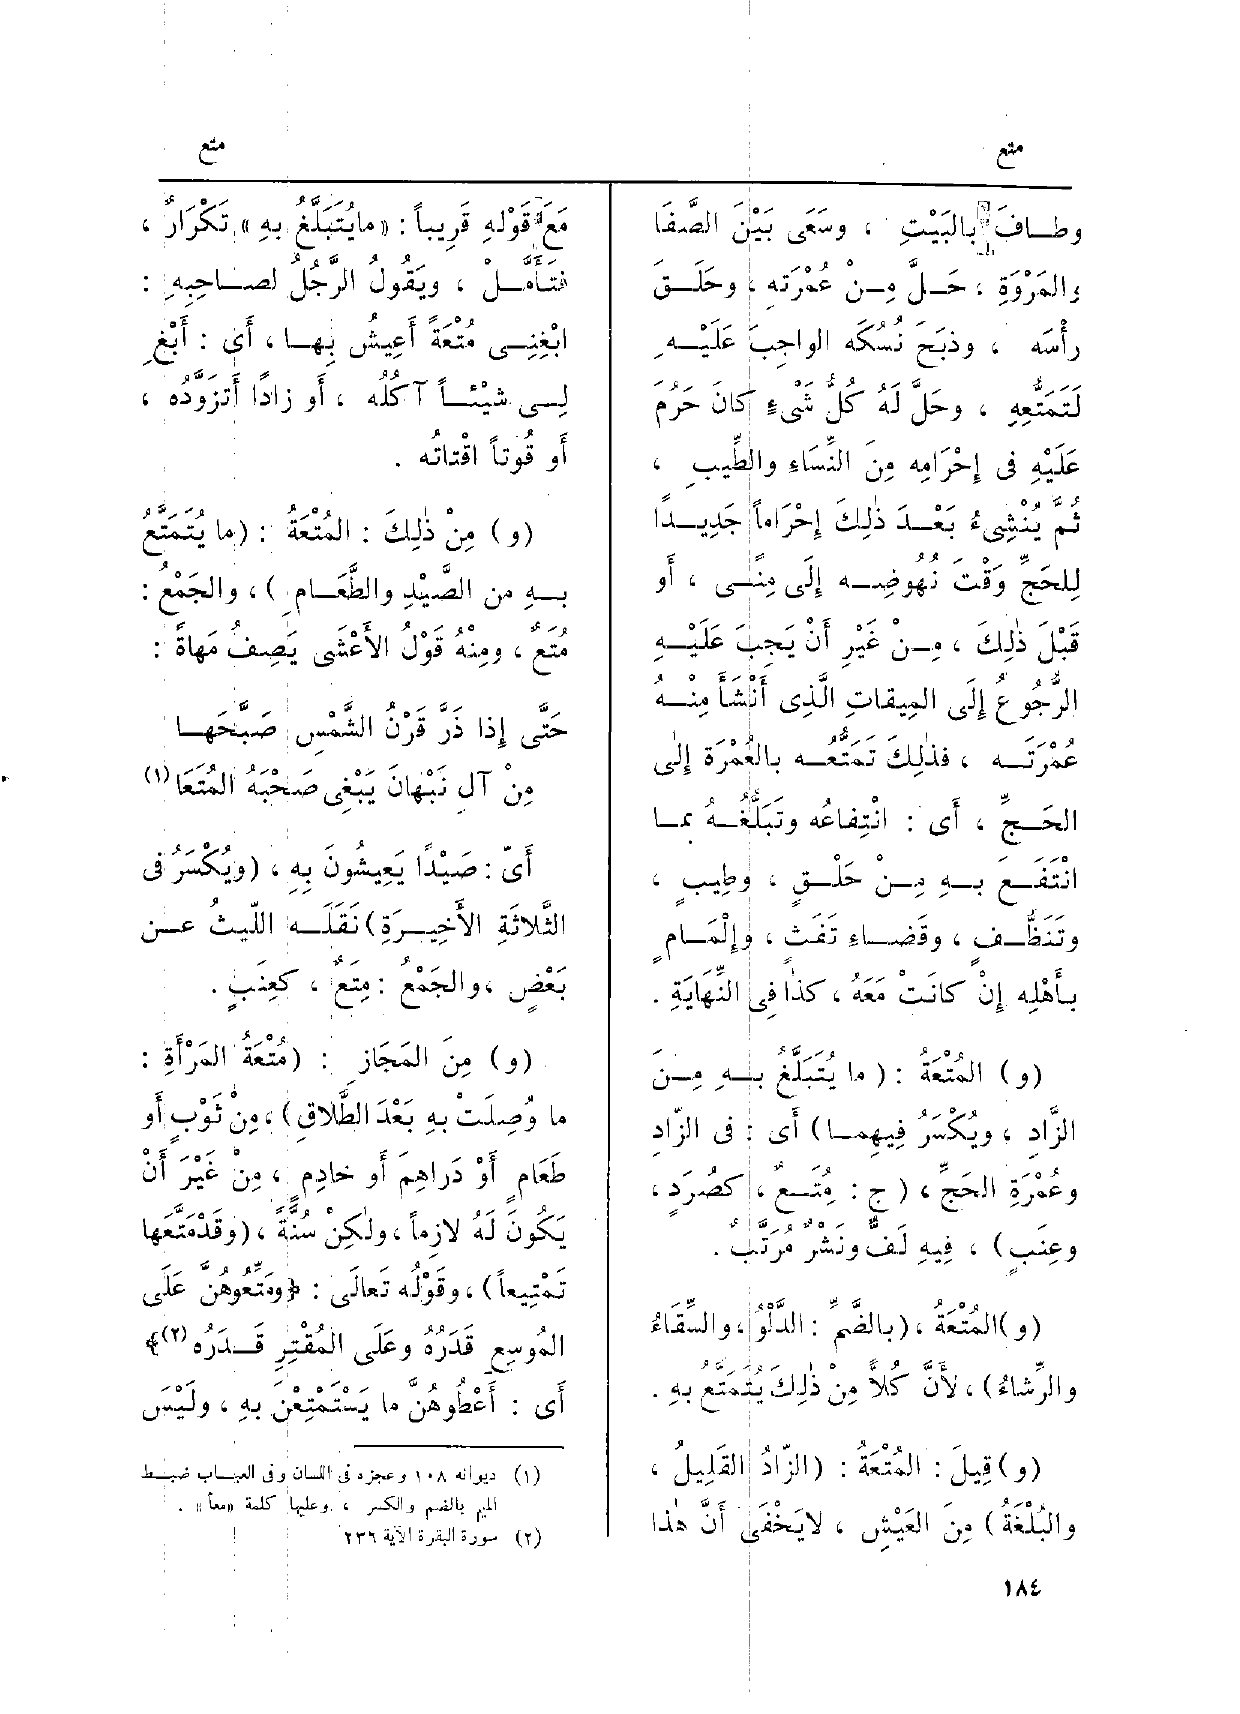 متع
متع
وطافَ بالبَيْتِ ، وسَعَى بَيْنَ الصَّفَا
والمَرْوَةِ ، حَلَّ مِنْ عُمْرَتِه ، وحَلَقَ
رأْسَه ، وذَبَحَ نُسُكَه الواجِبَ عَلَيْهِ
لتَمَتُّعِهِ ، وحَلَّ لَهُ كُلُّ شَىْءٍ كانَ حَرُمَ
عَلَيْهِ فى إِحْرَامِه مِنَ النِّسَاءِ والطِّيبِ ،
ثُمَّ يُنْشِىءُ بَعْدَ ذٰلِكَ إِحْرَاماً جَدِيدًا
لِلحَجِّ وَقْتَ نُهوضِه إِلَى مِنًى ، أَو
قَبْلَ ذٰلِكَ ، مِنْ غَيْرِ أَنْ يَجِبَ عَلَيْهِ
الرُّجُوعُ إِلَى المِيقاتِ الَّذِى أَنْشَأَ مِنْهُ
عُمْرَتَه ، فذٰلِكَ تَمَتُّعُه بالعُمْرَةِ إِلَى
الحَجِّ ، أَى : انْتِفاعُه وتَبَلُّغُهُ بما
انْتَفَعَ بهِ مِنْ حَلْقٍ ، وطِيبٍ ،
وتَنَظُّفٍ ، وقَضَاءِ تَفَثٍ ، وإِلْمَامٍ
بأَهْلِه إِنْ كانَتْ مَعَهُ ، كَذٰا فِى النِّهَايَةِ .
(و) المُتْعَةُ : ( ما يُتَبَلَّغُ بهِ مِنَ
الزَّادِ ، ويُكْسَرُ فِيهِما) أَى : فى الزّادِ
وعُمْرَةِ الحَجِّ ، ( ج : مُتَعٌ ، كصُرَدٍ ،
وعِنَبٍ) ، فِيهِ لَفٌّ ونَشْرٌ مُرَتَّبٌ .
(و)المُتْعَةُ ، (بالضَّمِّ : الدَّلْوُ ، والسِّقَاءُ
والرِّشَاءُ) ، لأَنَّ كُلاًّ مِنْ ذٰلِكَ يُتَمَتَّعُ بهِ .
(و)قِيلَ : المُتْعَةُ : (الزّادُ القَلِيلُ ،
والبُلْغَةُ) مِنَ العَيْشِ ، لايَخْفَى أَنَّ هٰذا
مَعَ قَوْلِهِ قَرِيباً : «مايُتَبَلَّغُ بهِ» تَكْرَارٌ ،
فتَأَمَّلْ ، ويَقُولُ الرَّجُلُ لصاحِبِهِ :
ابْغِنِى مُتْعَةً أَعِيشُ بِها ، أَى : أَبْغِ
لِى شَيْئاً آكُلُه ، أَو زادًا أَتَزَوَّدُه ،
أَو قُوتاً أَقْتاتُه .
(و) مِنْ ذٰلِكَ : المُتْعَةُ : (ما يُتَمَتَّعُ
بهِ من الصَّيْدِ والطَّعَامِ ) ، والجَمْعُ :
مُتَعٌ ، ومِنْهُ قَوْلُ الأَعْشَى يَصِفُ مَهاةً :
حَتَّى إِذا ذَرَّ قَرْنُ الشَّمْسِ صَبَّحَها
مِنْ آلِ نَبْهَانَ يَبْغِى صَحْبَهُ المُتَعَا(١)
أَىْ : صَيْدًا يَعِيشُونَ بِهِ ، (ويُكْسَرُ فى
الثَّلاثَةِ الأَخِيرَةِ)نَقَلَه اللَّيْثُ عن
بَعْضٍ ، والجَمْعُ : مِتَعٌ ، كَعِنَبٍ .
(و) مِنَ المَجَازِ : (مُتْعَةُ المَرْأَةِ :
ما وُصِلَتْ بهِ بَعْدَ الطَّلاقِ) ، مِنْ ثَوْبٍ أَو
طَعَامٍ أَوْ دَراهِمَ أَو خادِمٍ ، مِنْ غَيْرِ أَنْ
يَكُونَ لَهُ لازِماً ، ولٰكِنْ سُنَّةٌ ، (وقَدْمَتَّعَها
تَمْتِيعاً) ، وقَوْلُه تَعالَى : ﴿ومَتِّعُوهُنَّ عَلَى
المُوسِعِ قَدَرُهُ وعَلَى المُقْتِرِ قَدَرُه(٢)﴾
أَى : أَعْطُوهُنَّ ما يَسْتَمْتِعْنَ بهِ ، ولَيْسَ
(١) ديوانه ١٠٨ وعجزه فى اللسان وفى العباب ضبط
الميم بالضم والكسر ، وعليها كلمة «معاً» .
(٢) سورة البقرة الآية ٢٣٦
١٨٤